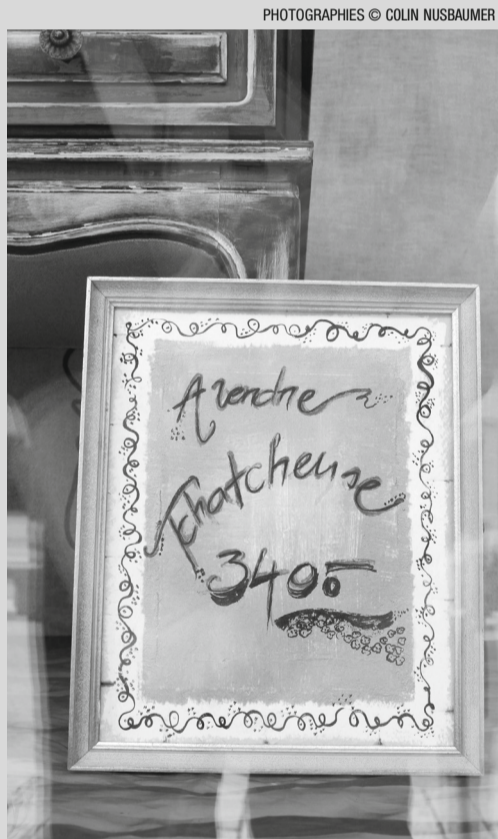 PHOTOGRAPHIES © COLIN NUSBAUMER
A vendre
Tchatcheuse
340.-